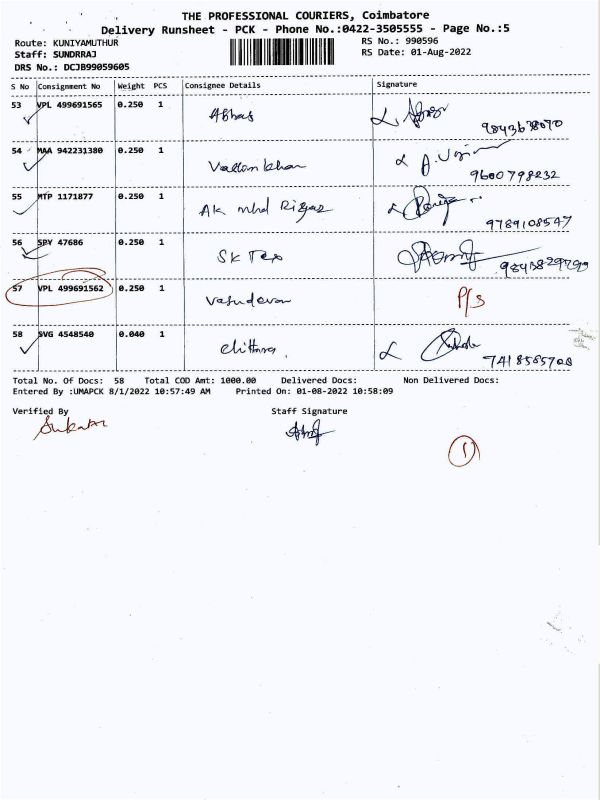 THE PROFESSIONAL COURIERS, Coimbatore
Delivery Runsheet - PCK - Phone No.:0422-3505555 - Page No.:5
Route: KUNIYAMUTHUR RS No.: 990596
Staff: SUNDRRAJ RS Date: 01-Aug-2022
DRS No.: DCJB99059605
S No Consignment No Weight PCS Consignee Details Signature
53 VPL 499691565 0.250 1 Abbas
54 MAA 942231380 0.250 1 9600798232
55 MTP 1171877 0.250 1 AK mhd Riyaz 9789108547
56 SPY 47686 0.250 1 SK Tex
57 VPL 499691562 0.250 1 Vasudevan P/s
58 SVG 4548540 0.040 1 Chithra. 7418585708
Total No. Of Docs: 58 Total COD Amt: 1000.00 Delivered Docs: Non Delivered Docs:
Entered By :UMAPCK 8/1/2022 10:57:49 AM Printed On: 01-08-2022 10:58:09
Verified By Staff Signature
1